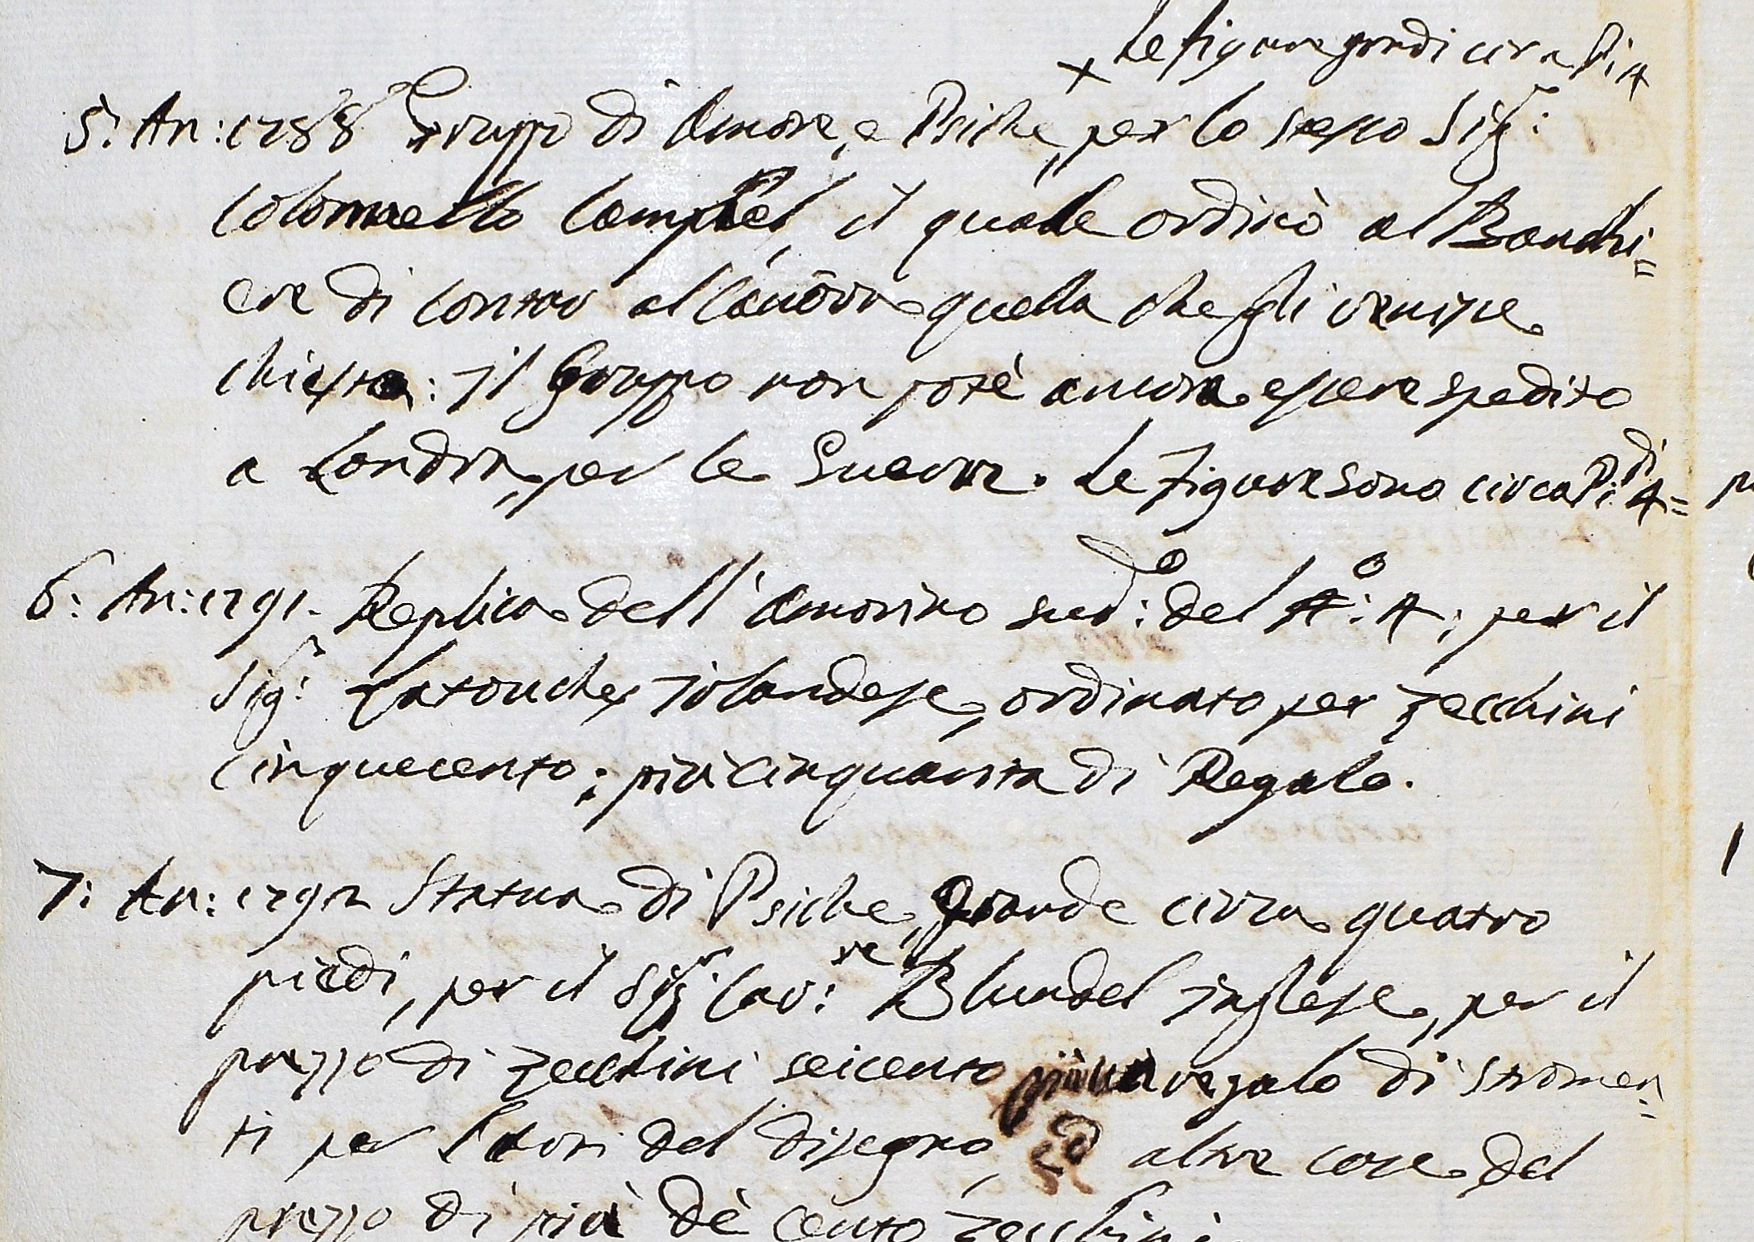 × Le figure grandi circa Pi 4
5: An: 1788 Gruppo di Amore, e Psiche, per lo stesso Sig.r:
Colonnello Campbel, il quale ordinò al Banchi=
ere di contar al Canova quella che gli venisse
chiesta: il Gruppo non potè ancora essere spedito
a Londra, per le Guerre. Le figure sono circa Pi:di 4=
6: An: 1791. Replica dell'Amorino sud:o del N:o 4; per il
Sig.r: Latouche, irlandese, ordinato per zecchini
cinquecento; più cinquanta di Regalo.
7: An: 1792 Statua di Psiche, grande circa quatro
piedi, per il Sig.r Cav:re Blundel inglese, per il
prezzo di zecchini seicento più un regalo di stromen=
ti per l'arti del disegno, ed altre cose del
prezzo di più dè cento zecchini.